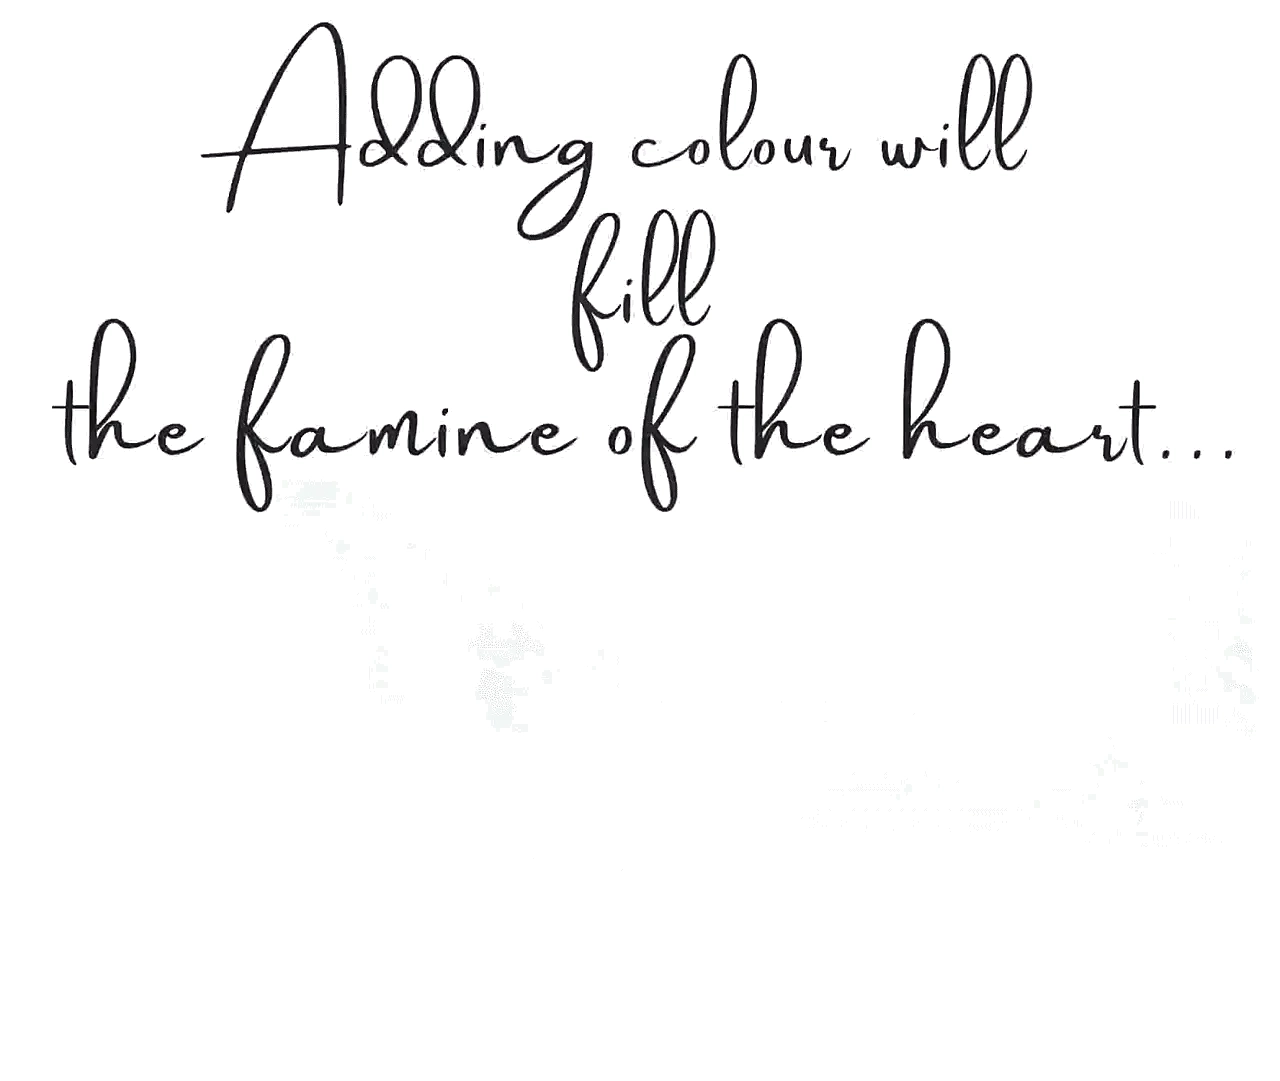 Adding colour will
fill
the famine of the heart...